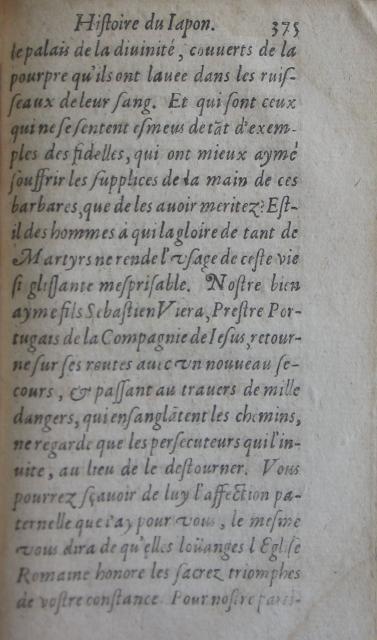 Hiſtoire du Iapon. 375
le palais de la diuinité, couuerts de la
pourpre qu'ils ont lauee dans les ruiſ-
ſeaux de leur ſang. Et qui ſont ceux
qui ne ſe ſentent eſmeus de tãt d'exem-
ples des fidelles, qui ont mieux aymé
ſouffrir les ſupplices de la main de ces
barbares, que de les auoir meritez? Eſt-
il des hommes à qui la gloire de tant de
Martyrs ne rende l'vſage de ceſte vie
ſi gliſſante meſpriſable. Noſtre bien
ayme fils Sebaſtien Viera, Preſtre Por-
tugais de la Compagnie de Ieſus, retour-
ne ſur ſes routes auec vn nouueau ſe-
cours, & paſſant au trauers de mille
dangers, qui enſanglãtent les chemins,
ne regarde que les perſecuteurs qui l'in-
uite, au lieu de le deſtourner. Vous
pourrez ſçauoir de luy l'affection pa-
ternelle que i'ay pour vous, le meſme
vous dira de qu'elles loüanges l'Egliſe
Romaine honore les ſacrez triomphes
de voſtre conſtance. Pour noſtre